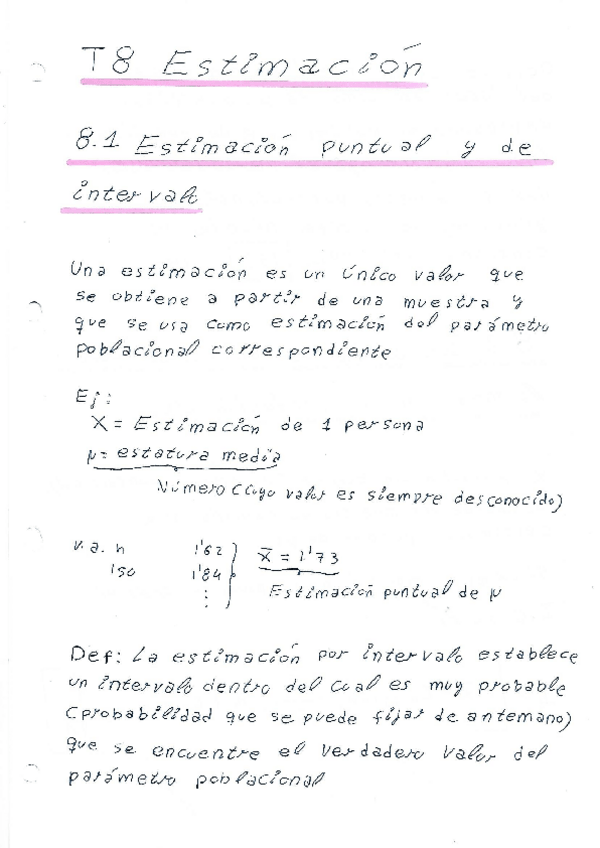 T8 Estimación
8.1 Estimación puntual y de
intervalo
Una estimación es un único valor que
se obtiene a partir de una muestra y
que se usa como estimación del parámetro
poblacional correspondiente
Ej:
X = Estimación de 1 persona
μ = estatura media
Número (cuyo valor es siempre desconocido)
v.a. n 1'62 x̄ = 1'73
150 1'84
⋮ Estimación puntual de μ
Def: La estimación por intervalo establece
un intervalo dentro del cual es muy probable
(probabilidad que se puede fijar de antemano)
que se encuentre el verdadero valor del
parámetro poblacional